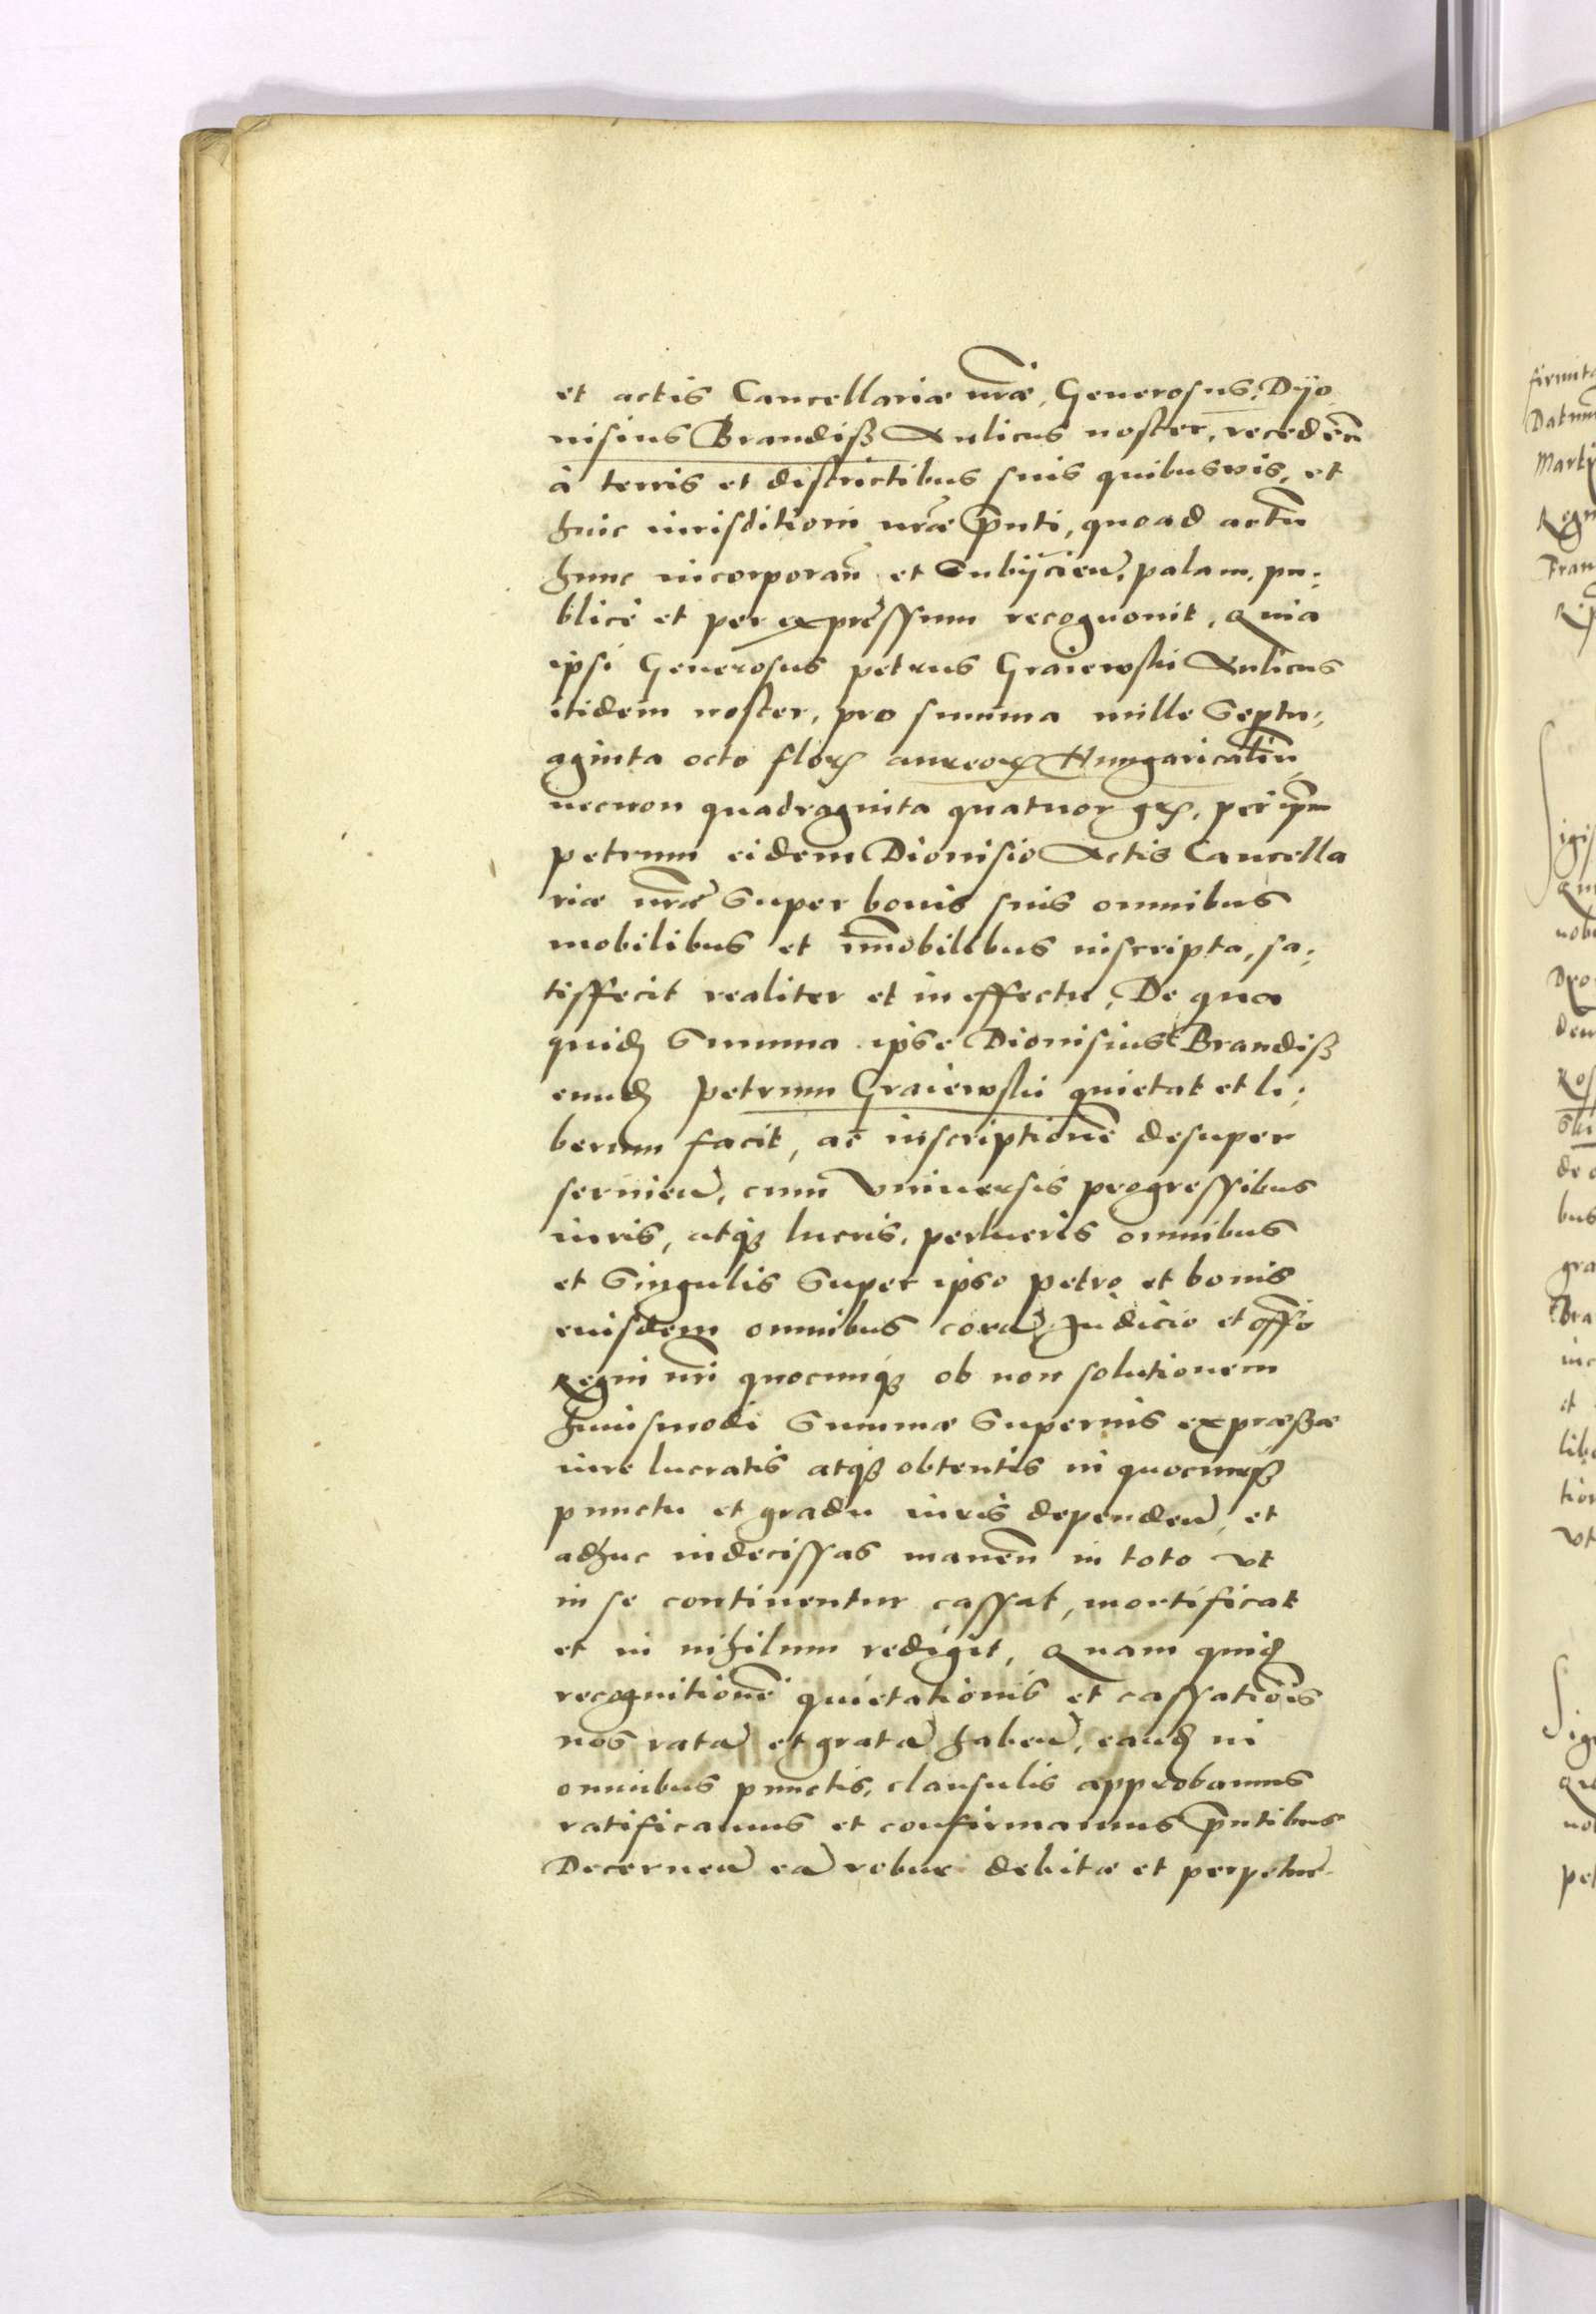 et actis Cancellariæ nr̃æ, Generosus. Dyo
nisius Brandiß Aulicus noster, recedeñ
à terris et districtibus suis quibusvis, et
huic iurisditioni nr̃æ p̃nti, quoad actũ
hunc incorporañ et Subijcien̄, palam, pu:
blicè et per expressum recognovit, Quia
ipsi Generosus petrus Graiewski Aulicus
itidem noster, pro summa mille Septu:
aginta octo floꝝ aureoꝝ Hungaricaliũ
necnon quadraginta quatuor gꝝ, per ip̃m
petrum eidem Dionisio Actis Cancella
riæ nr̃æ Super bonis suis omnibus
mobilibus et im̃obilibus inscripta, sa:
tisffecit realiter et in effectu, De qua
quidẽ Summa ipse Dionisius Brandiß
eundẽ petrum Graiewski quietat et li:
berum facit, ac inscriptionẽ desuper
servien̄, cum Vniuersis progressibus
iuris, atqꝫ lucris, perlucris omnibus
et Singulis Super ipso petro et bonis
eiusdem omnibus corã Judicio et offõ
Regni nr̃i quocunqꝫ ob non solutionem
huiusmodi Summæ Superius expræßæ
iure lucratis atqꝫ obtentis in quocunqꝫ
punctu et gradu iuris dependen̄, et
adhuc indecissas maneñ in toto vt
in se continentur cassat, mortificat
et in nihilum redigit, Quam quidẽ
recognitionẽ quietationis et cassatiõis
nos ratã et gratã haben̄, eandẽ in
omnibus punctis, clausulis approbamus
ratificamus et confirmamus p̃ntibus
Decernen̄ eã robur debitæ et perpetuæ